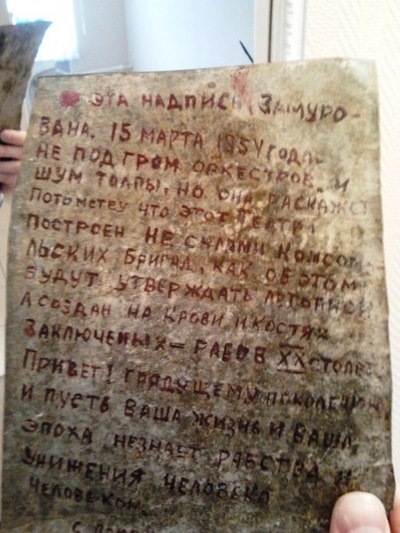 ЭТА НАДПИСЬ ЗАМУРО-
ВАНА. 15 МАРТА 1954 ГОДА.
НЕ ПОД ГРОМ ОРКЕСТРОВ И
ШУМ ТОЛПЫ, НО ОНА РАСКАЖЕТ
ПОТОМСТВУ ЧТО ЭТОТ ТЕАТР
ПОСТРОЕН НЕ СИЛАМИ КОМСОМО
ЛЬСКИХ БРИГАД, КАК ОБ ЭТОМ
БУДУТ УТВЕРЖДАТЬ ЛЕТОПИСИ
А СОЗДАН НА КРОВИ И КОСТЯХ
ЗАКЛЮЧЕНЫХ — РАБОВ XX СТОЛЕТ
ПРИВЕТ! ГРЯДУЩЕМУ ПОКОЛЕНИЮ,
И ПУСТЬ ВАША ЖИЗНЬ И ВАША
ЭПОХА НЕЗНАЕТ РАБСТВА И
УНИЖЕНИЯ ЧЕЛОВЕКА
ЧЕЛОВЕКОМ.
С